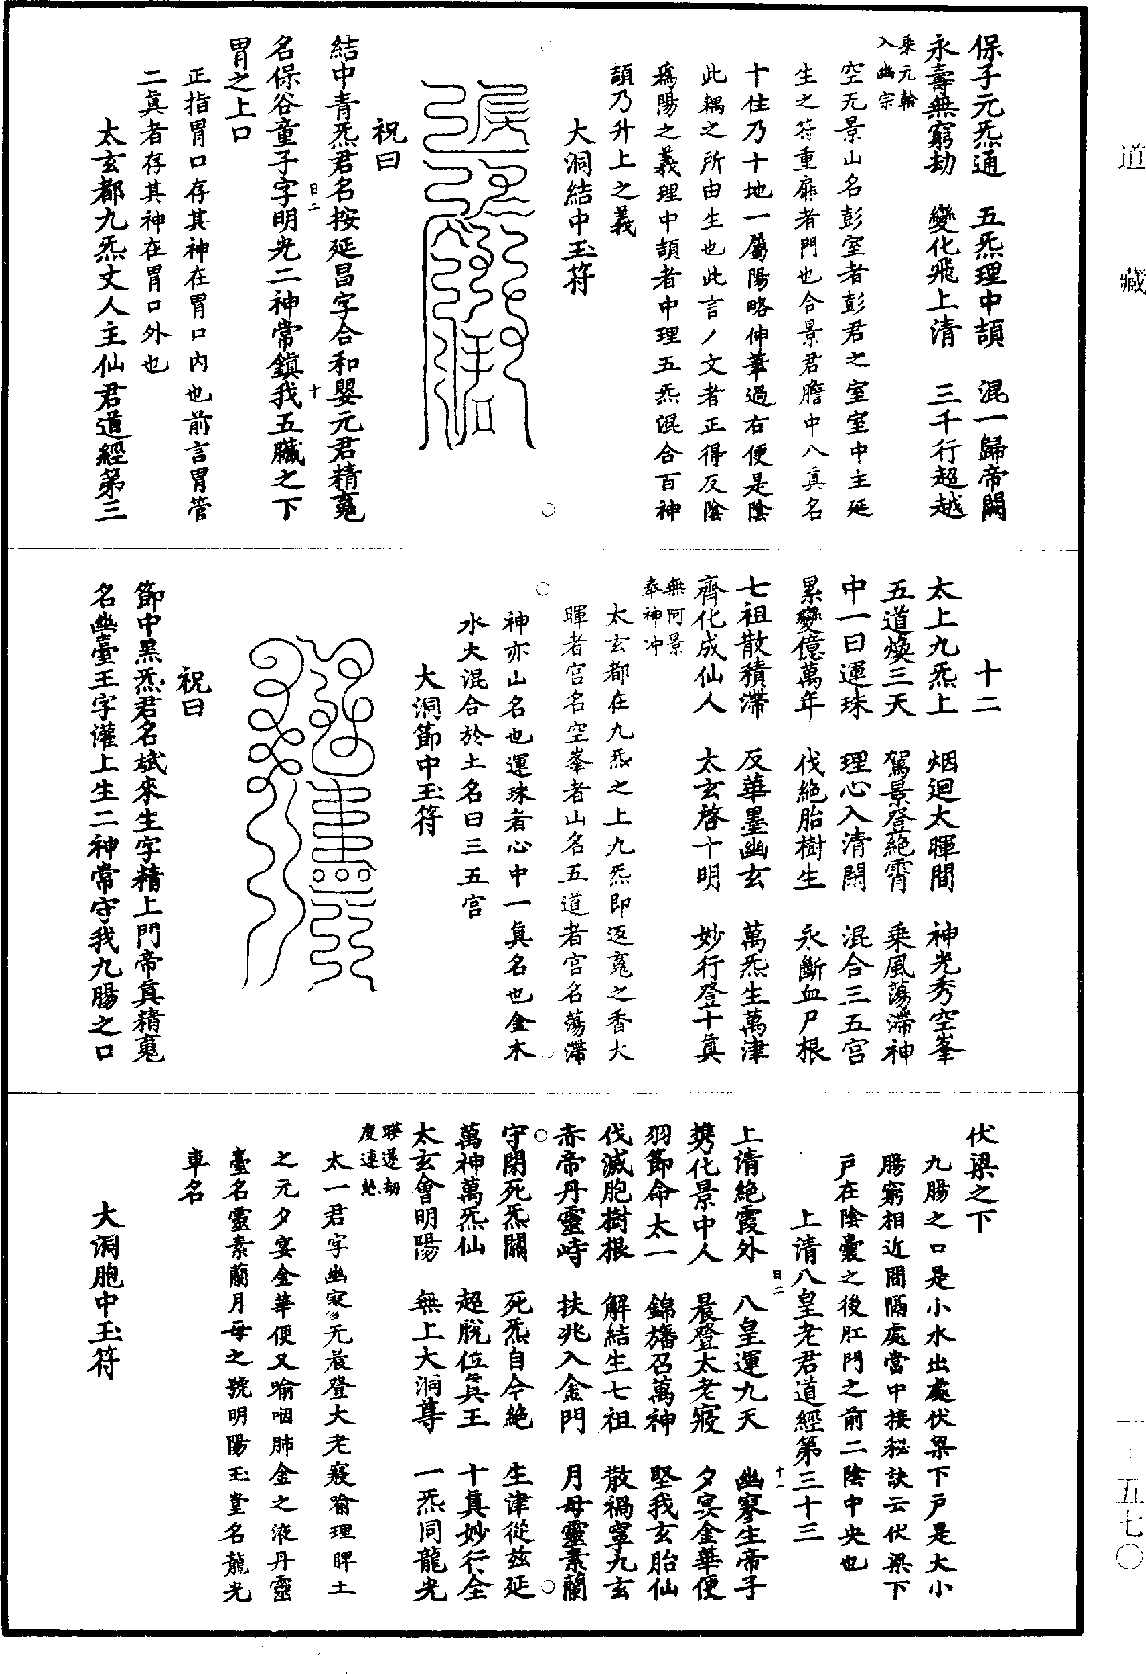 道藏
一·五七〇
保子元炁通　五炁理中頡　混一歸帝關
永壽無窮劫　變化飛上清　三千行超越
乘元輪
入幽宗
空无景山名彭室者彭君之室室中主延
生之符重扉者門也合景君膽中八真名
十住乃十地一屬陽略伸華過右便是陰
此耦之所由生也此言丿文者正得反陰
為陽之義理中頡者中理五炁混合百神
頡乃升上之義
大洞結中玉符
祝曰
結中青炁君名按延昌字合和嬰元君精䰟
名保谷童子字明光二神常鎮我五臟之下
胃之上口
正指胃口存其神在胃口內也前言胃管
二真者存其神在胃口外也
太玄都九炁丈人主仙君道經第三
十二
太上九炁上　烟迴大暉間　神光秀空峯
五道煥三天　駕景登絶霄　乘風蕩滯神
中一日運珠　理心入清關　混合三五宮
累變億萬年　伐絶胎樹生　永斷血尸根
七祖散積滯　反華墨幽玄　萬炁生萬津
齊化成仙人　太玄啓十明　妙行登十真
無阿景
奉神冲
太玄都在九炁之上九炁即返䰟之香大
暉者宮名空峯者山名五道者宮名蕩滯
神亦山名也運珠者心中一真名也金木
水火混合於土名曰三五宮
大洞節中玉符
祝曰
節中黑炁君名斌來生字精上門帝真精䰟
名幽臺王字灌上生二神常守我九腸之口
伏梁之下
九腸之口是小水出處伏梁下戶是大小
腸窮相近間隔處當中接秘訣云伏梁下
戶在陰囊之後肛門之前二陰中央也
上清八皇老君道經第三十三
上清絶霞外　八皇運九天　幽寥生帝子
携化景中人　晨登太老寢　夕宴金華便
羽節命太一　錦旛召萬神　堅我玄胎仙
伐滅胞樹根　解結生七祖　散禍寧九玄
赤帝丹靈峙　扶兆入金門　月母靈素蘭
守閑死炁關　死炁自今絶　生津從兹延
萬神萬炁仙　超脫位真王　十真妙行全
太玄會明陽　無上大洞尊　一炁同龍光
太一君字幽寥无晨登大老寢喻理脾土
之元夕宴金華便又喻咽肺金之液丹靈
臺名靈素蘭月母之號明陽玉堂名龍光
車名
大洞胞中玉符